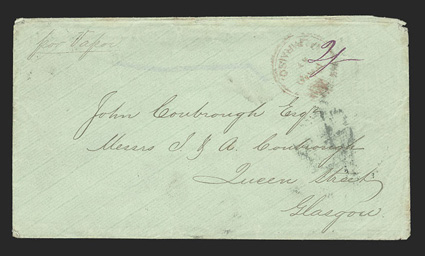 por Vapor
2/
John Coubrough Esqr
Messrs J & A Coubrough
Queen Street
Glasgow